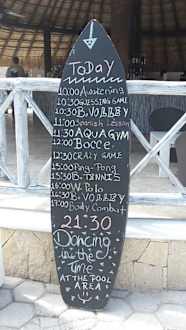 TODAY
10:00 Awakening
10:30 GUESSING GAME
10:30 B.VOLLEY
11:00 Spanish Lesson
11:30 AQUAGYM
12:00 Bocce
12:30 CRAZY GAME
15:00 Ping-Pong
15:30 B-TENNIS
16:00 W. Polo
16:30 B.VOLLEY
17:00 Body Combat
21:30
Dancing
in the
Time
AT THE POOL
AREA